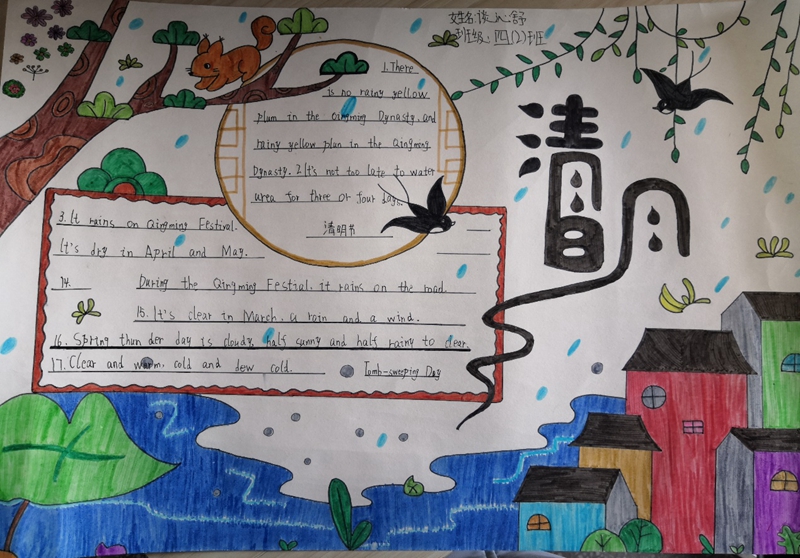 姓名:谈沁舒
班级:四(2)班
清明
1.There
is no rainy yellow
plum in the qingming Dynasty, and
rainy yellow plan in the Qingming
Dynasty. 2.It's not too late to water
urea for three or four days.
清明节
3.It rains on Qingming Festival.
It's dry in April and May.
14. During the Qingming Festial, it rains on the road.
15. It's clear in March. a rain and a wind.
16. Spring thun der day is cloudy, half sunny and half rainy to clear.
17. Clear and warm, cold and dew cold. Tomb-sweeping Day